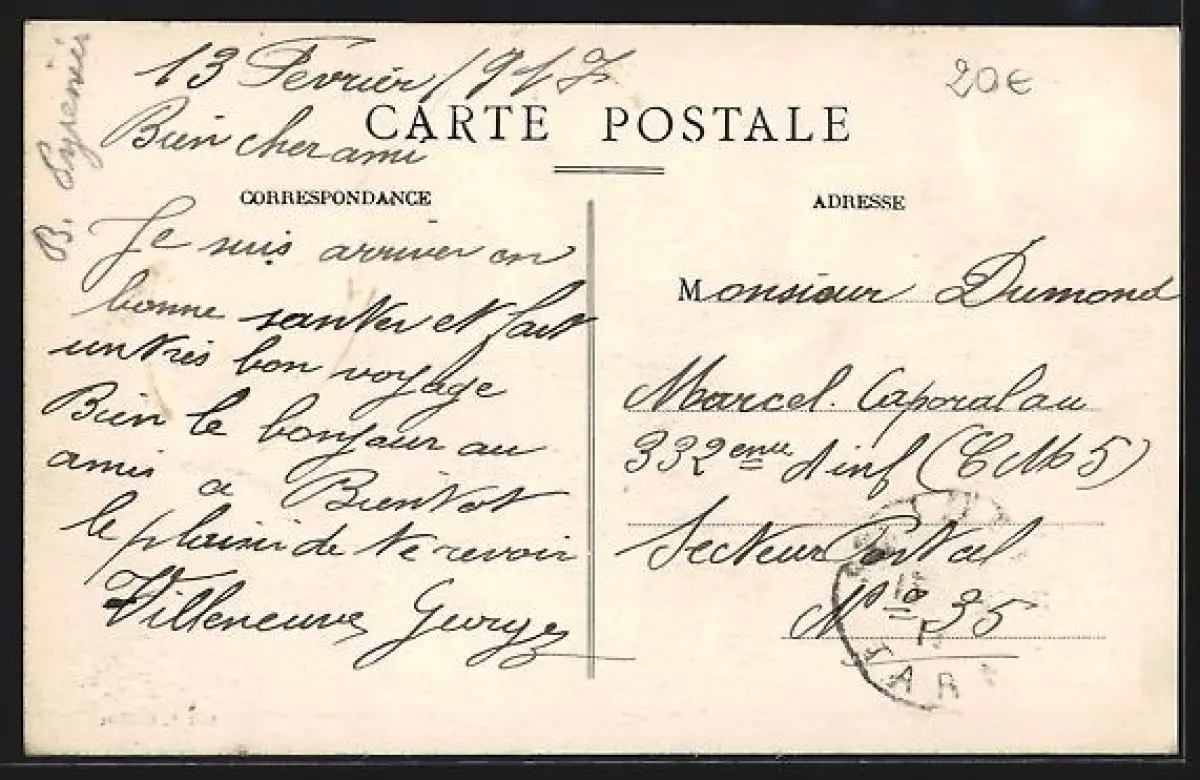 B. Pyrenées
13 Fevrier 1917
20€
Bien cher ami
CARTE POSTALE
CORRESPONDANCE
Je suis arriver en
bonne santter et fait
un tres bon voyage
Bien le bonjour au
amis a Bientot
le plaisir de te revoir
Villeneuve Georges
ADRESSE
Monsieur Dumond
Marcel. Caporal au
332eme d'inf (CM5)
Secteur Postal
N° 35
TAR